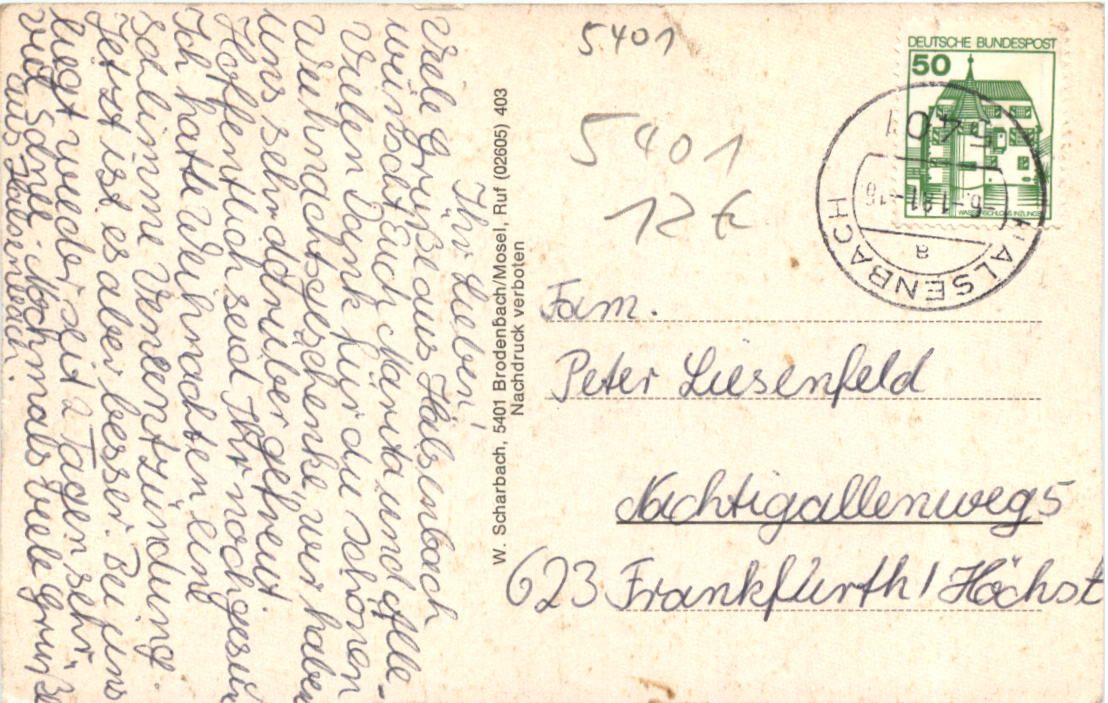 5401
5401
12 €
DEUTSCHE BUNDESPOST
50
WASSERSCHLOSS INZLINGEN
5401
HALSENBACH
a
Ihr Lieben!
Viele Grüße aus Halsenbach
wünscht Euch Marita und Alle-
Vielen Dank für die schönen
Weihnachtsgeschenke, wir haben
uns sehr darüber gefreut
Hoffentlich seid Ihr noch gesund
Ich hatte Weihnachten eine
schlimme Venentzündung
Jetzt ist es aber besser. Bei uns
liegt wieder seit 2 Tagen sehr
viel Schnee. Nochmals viele Grüße
aus Halsenbach.
W. Scharbach, 5401 Brodenbach/Mosel, Ruf (02605) 403
Nachdruck verboten
Fam.
Peter Liesenfeld
Nachtigallenweg 5
623 Frankfurth / Höchst